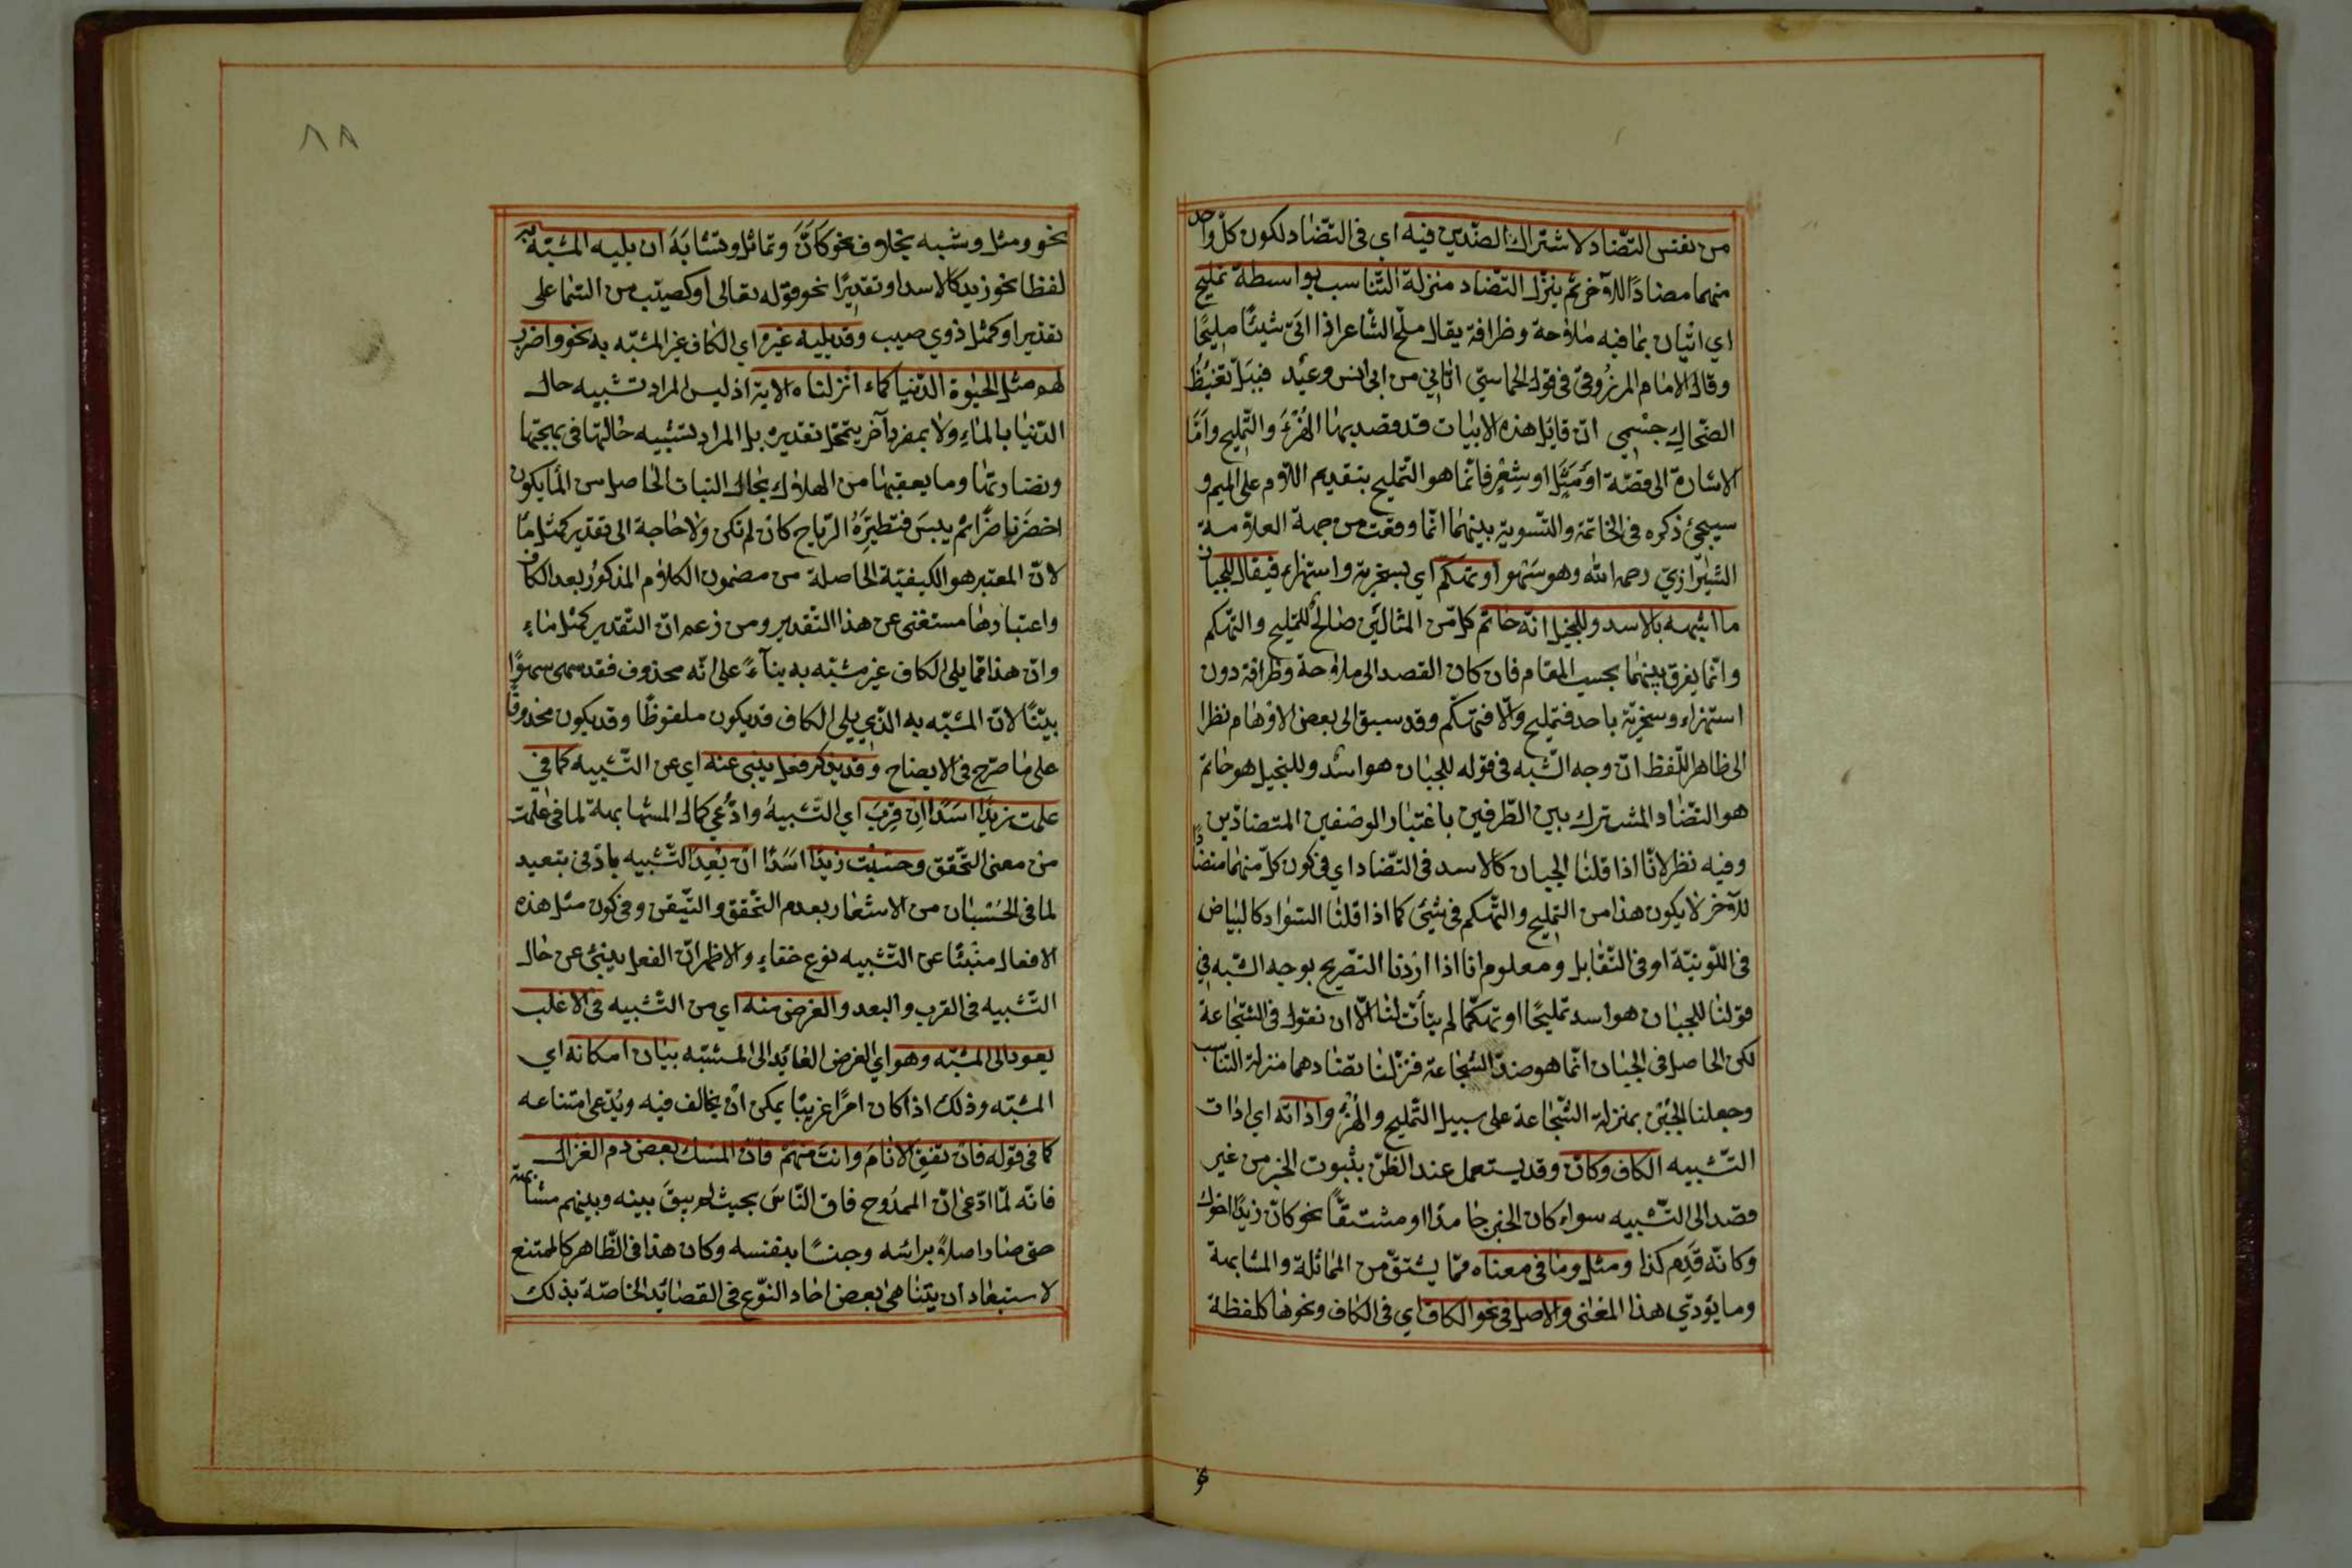 من نفس التضاد لاشتراك الضدين فيه اي فى التضاد لكون كل واحد
منهما مضادا للآخر ثم ينزل التضاد منزلة التناسب بواسطة تمليح
اي اتيان بما فيه ملاحة وظرافة يقال ملح الشاعر اذا اتى شيئا مليحا
وقال الامام المرزوقى فى قول الحماسي اتاني من ابى انس وعيد فسل تغيظ
الضحاك جسمي ان قايل هذه الابيات قد قصد بها الهزء والتمليح واما
الاشارة الى قصة او مثل او شعر فانما هو التمليح بتقديم اللام على الميم و
سيجئ ذكره فى الخاتمة والتسوية بينهما انما وقعت من جهة العلامة
الشيرازي رحمه الله وهو سهو او تهكم اي سخرية واستهزاء فيقال للجبان
ما اشبهه بالاسد وللبخيل انه حاتم كل من المثالين صالح للتمليح والتهكم
وانما يفرق بينهما بحسب المقام فان كان القصد الى ملاحة وظرافة دون
استهزاء وسخرية باحد فتمليح والا فتهكم وقد سبق الى بعض الاوهام نظرا
الى ظاهر اللفظ ان وجه الشبه فى قوله للجبان هو اسد وللبخيل هو حاتم
هو التضاد المشترك بين الطرفين باعتبار الوصفين المتضادين
وفيه نظر لانا اذا قلنا الجبان كالاسد فى التضاد اي فى كون كل منهما متضادا
للآخر لا يكون هذا من التمليح والتهكم فى شئ كما اذا قلنا السواد كالبياض
فى اللونية او فى التقابل ومعلوم انا اذا اردنا التصريح بوجه الشبه في
قولنا للجبان هو اسد تمليحا او تهكما لم يتأت لنا الا ان نقول فى الشجاعة
لكن الحاصل فى الجبان انما هو ضد الشجاعة فنزلنا تضادهما منزلة التناسب
وجعلنا الجبن بمنزلة الشجاعة على سبيل التمليح والهزء واداته اي ادات
التشبيه الكاف وكأن وقد يستعمل عند الظن بثبوت الخبر من غير
قصد الى التشبيه سواء كان الخبر جامدا او مشتقا نحو كان زيدا اخوك
وكانه قدم كذا ومثل وما فى معناه مما يشتق من المماثلة والمشابهة
وما يؤدي هذا المعنى والاصل فى نحو الكاف اي فى الكاف ونحوها كلفظة
نحو ومثل وشبه بخلاف نحو كان وتماثل وتشابه ان يليه المشبه به
لفظا نحو زيد كالاسد او تقديرا نحو قوله تعالى او كصيب من السماء على
تقدير او كمثل ذوي صيب وقد يليه غيره اي الكاف غير المشبه به نحو واضرب
لهم مثل الحيوة الدنيا كماء انزلناه الاية اذ ليس المراد تشبيه حال
الدنيا بالماء ولا بمفرد آخر يتمحل تقديره بل المراد تشبيه حالها فى بهجتها
ونضارتها وما يعقبها من الهلاك بحال النبات الحاصل من الماء يكون
اخضر ناضرا ثم ييبس فتطيره الرياح كان لم تكن ولا حاجة الى تقدير كمثل ماء
لان المعتبر هو الكيفية الحاصلة من مضمون الكلام المذكور بعد الكاف
واعتبارها مستغنى عن هذا التقدير ومن زعم ان التقدير كمثل ماء
وان هذا مما يلى الكاف غير مشبه به بناء على انه محذوف فقد سهى سهوا
بينا لان المشبه به الذي يلى الكاف قد يكون ملفوظا وقد يكون محذوفا
على ما صرح فى الايضاح وقد يذكر فعل ينبى عنه اي عن التشبيه كما في
علمت زيدا اسدا ان قرب اي التشبيه وادعي كمال المشابهة لما فى علمت
من معنى التحقق وحسبت زيدا اسدا ان بعد التشبيه بادنى تبعيد
لما فى الحسبان من الاشعار بعدم التحقق والتيقن وفى كون مثل هذه
الافعال منبئا عن التشبيه نوع خفاء والاظهر ان الفعل ينبئ عن حال
التشبيه فى القرب والبعد والغرض منه اي من التشبيه فى الاغلب
يعود الى المشبه وهو اي الغرض العايد الى المشبه بيان امكانه اي
المشبه وذلك اذا كان امرا غريبا يمكن ان يخالف فيه ويدعى امتناعه
كما فى قوله فان تفق الانام وانت منهم فان المسك بعض دم الغزال
فانه لما ادعى ان الممدوح فاق الناس بحيث لم يبق بينه وبينهم مشابهة
حتى صار اصلا برأسه وجنسا بنفسه وكان هذا فى الظاهر كالممتنع
لاستبعاد ان يتناهى بعض احاد النوع فى القضايد الخاصة بذلك